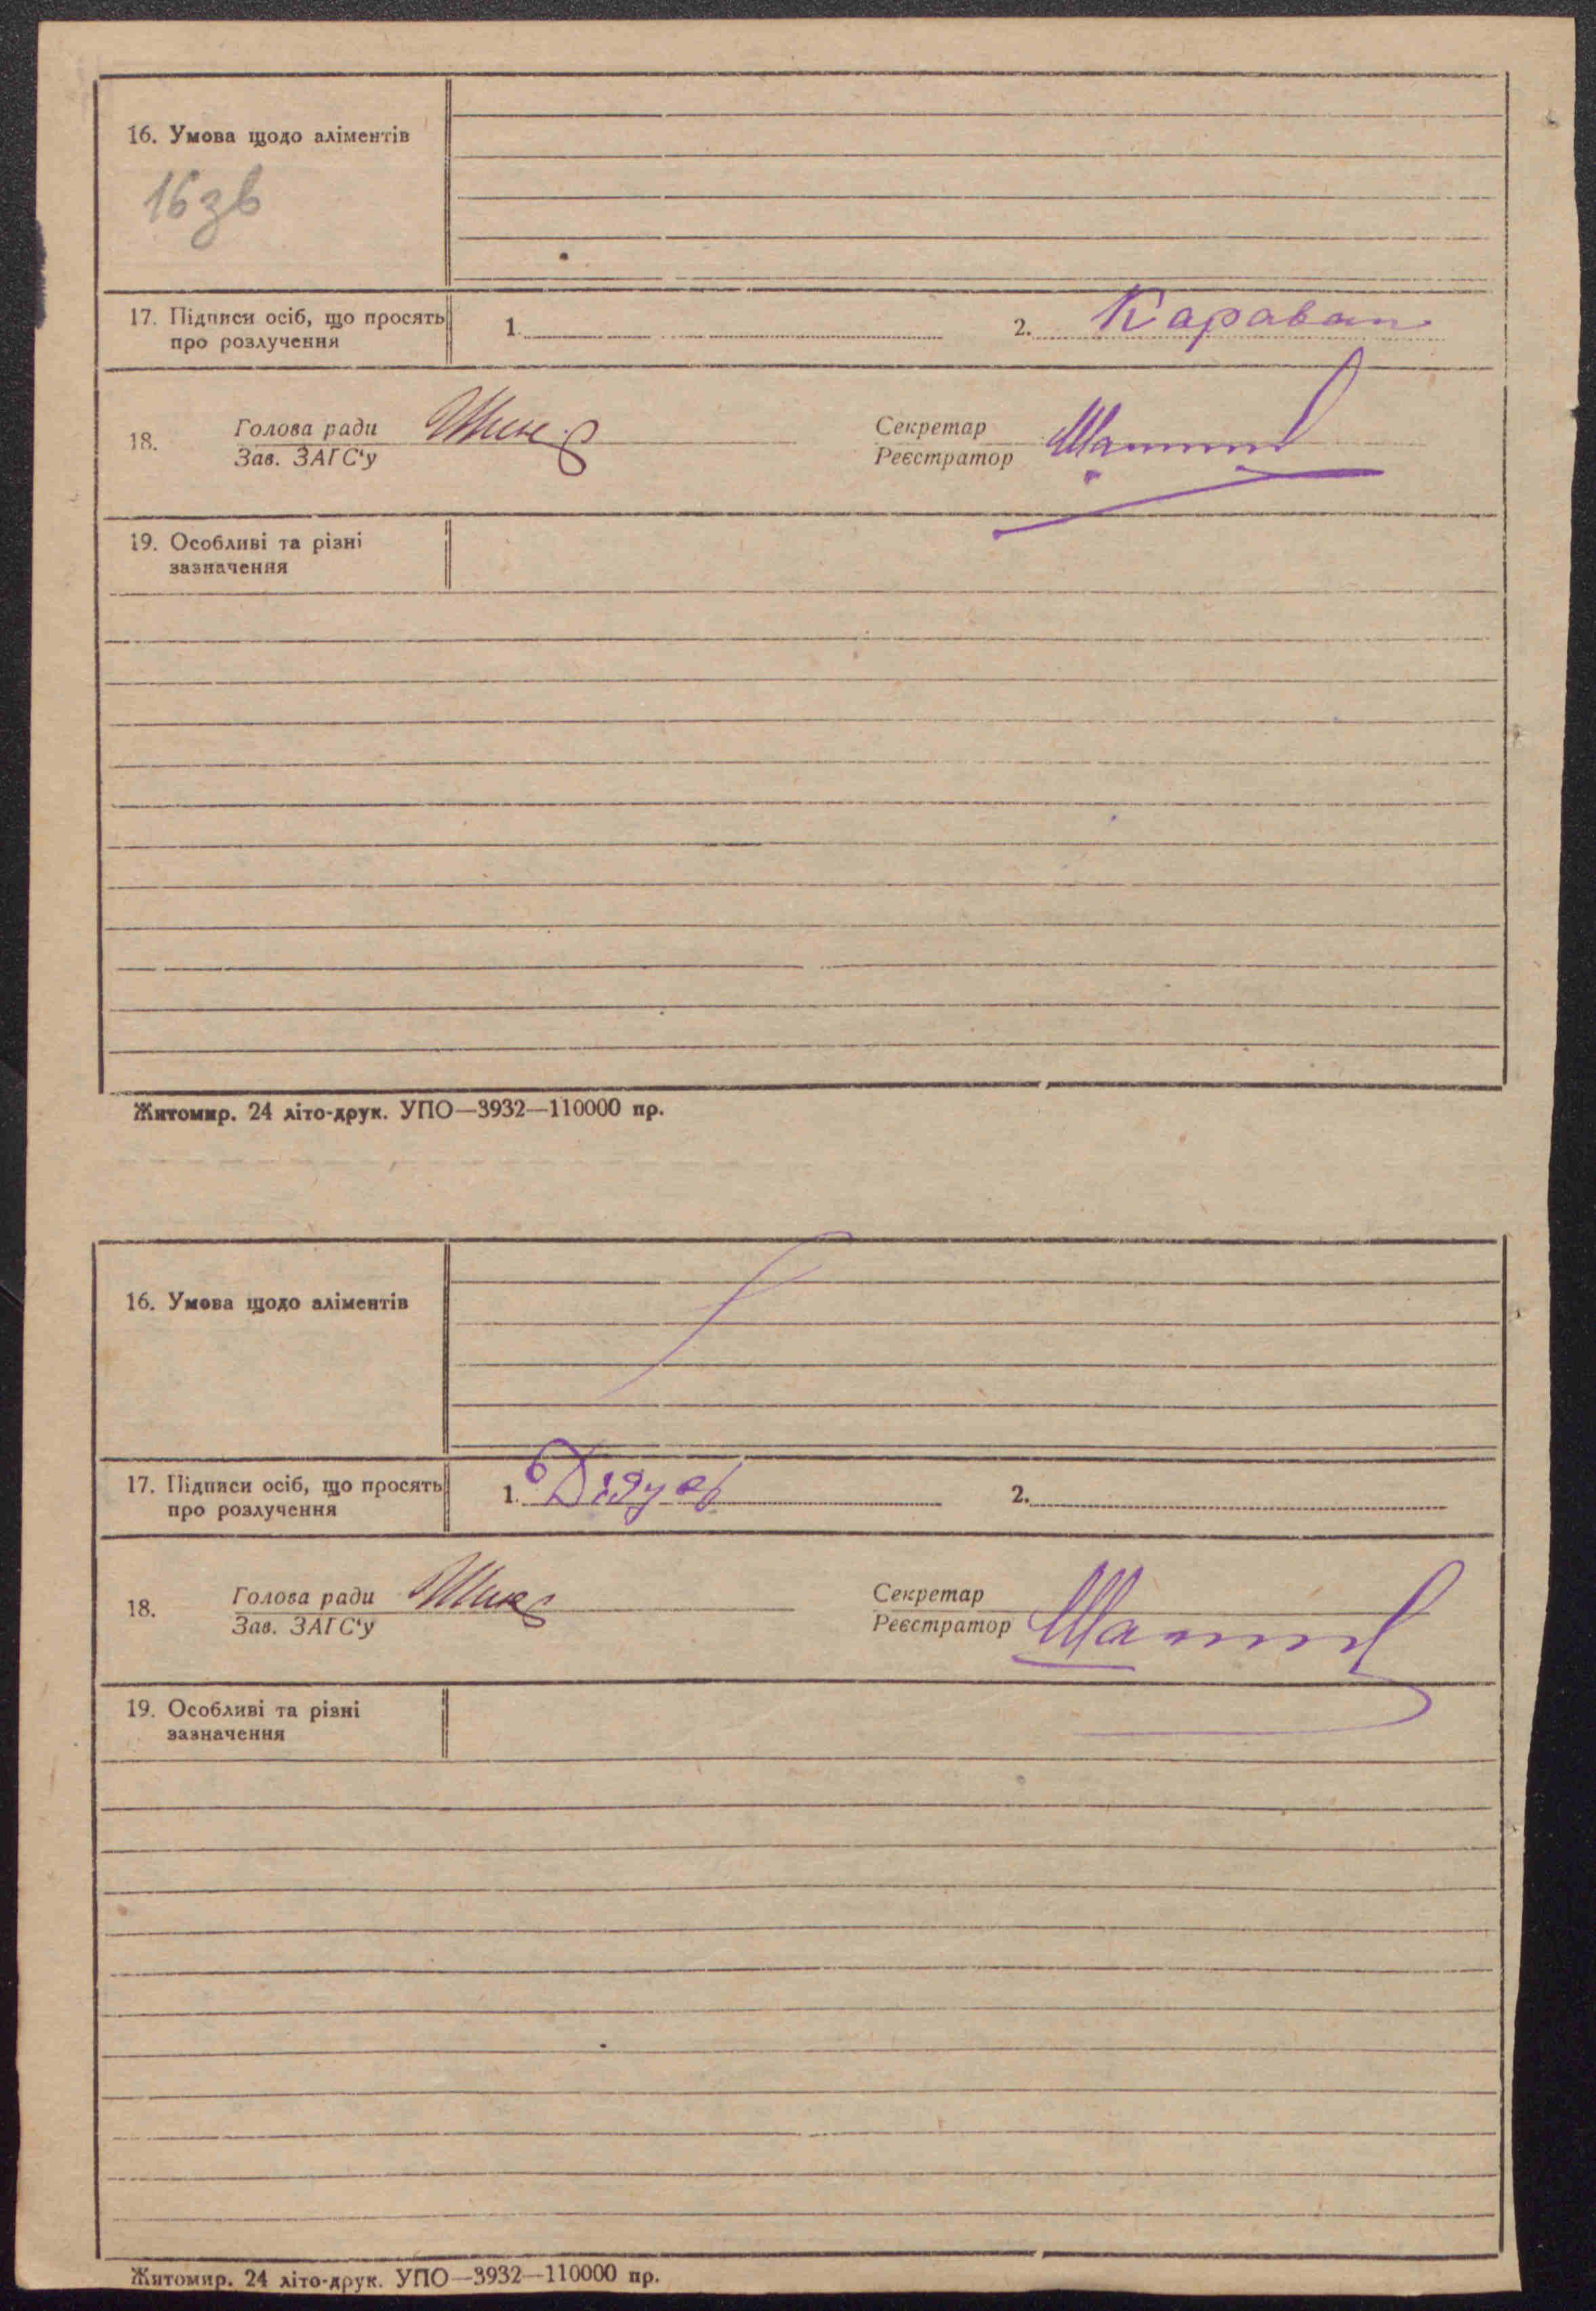 16. Умова щодо аліментів
16зв
17. Підписи осіб, що просять про розлучення
1.
2. Караван
18.
Голова ради
Зав. ЗАГС'у
Секретар
Реєстратор
19. Особливі та різні
зазначення
Житомир. 24 літо-друк. УПО—3932—110000 пр.
16. Умова щодо аліментів
17. Підписи осіб, що просять про розлучення
1.
2.
18.
Голова ради
Зав. ЗАГС'у
Секретар
Реєстратор
19. Особливі та різні
зазначення
Житомир. 24 літо-друк. УПО—3932—110000 пр.